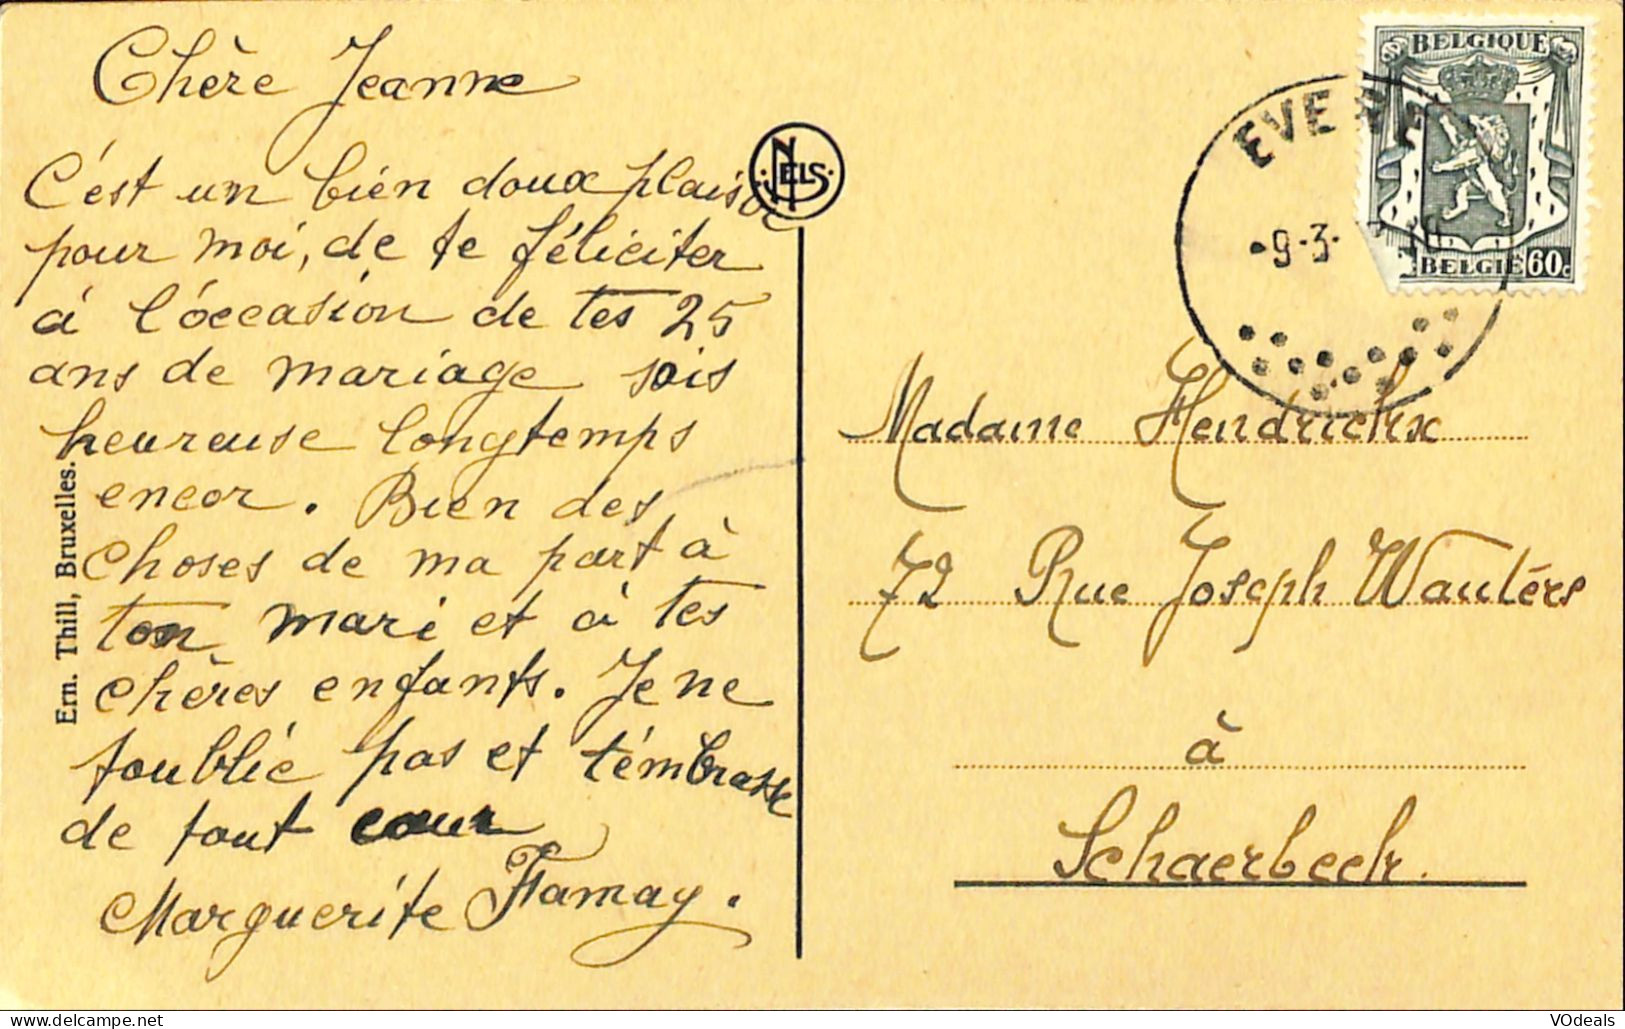 Chère Jeanne
C'est un bien doux plaisir
pour moi, de te féliciter
à l'óccasion de tes 25
ans de mariage sois
heureuse longtemps
encor. Bien des
choses de ma part à
ton mari et à tes
chères enfants. Je ne
toublie pas et t'émbrasse
de tout cœur
Marguerite
Ern. Thill, Bruxelles.
NELS
BELGIQUE
BELGIË 60c
EVERE
-9-3-
Madame Hendrickx
72 Rue Joseph Wautérs
à
Schaerbeek.
VOdeals